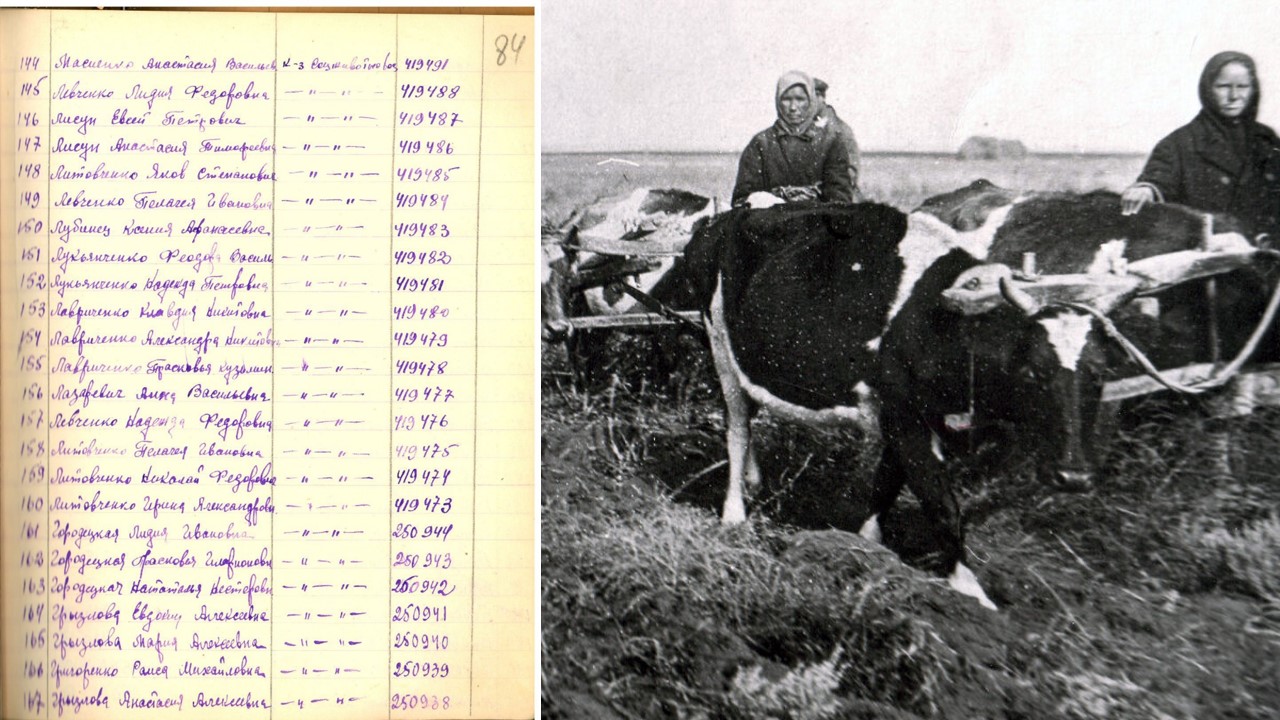 84
144 Масиенко Анастасия Васильев к-з Соцживотновод 419491
145 Левченко Лидия Федоровна — " — " — 419488
146 Лисун Евсей Петрович — " — " — 419487
147 Лисун Анастасия Тимофеевна — " — " — 419486
148 Литовченко Яков Степанович — " — " — 419485
149 Левченко Пелагея Ивановна — " — " — 419484
150 Лубинец Ксения Афанасевна — " — " — 419483
151 Лукьянченко Феодора Василь — " — " — 419482
152 Лукьянченко Надежда Петровна — " — " — 419481
153 Лавриченко Клавдия Никитовна — " — " — 419480
154 Лавриченко Александра Никитовна — " — " — 419479
155 Лавриченко Прасковья Кузьмин — " — " — 419478
156 Лазаревич Анна Васильевна — " — " — 419477
157 Левченко Надежда Федоровна — " — " — 419476
158 Литовченко Пелагея Ивановна — " — " — 419475
159 Литовченко Николай Федорович — " — " — 419474
160 Литовченко Ирина Александровн — " — " — 419473
161 Городецкая Лидия Ивановна — " — " — 250944
162 Городецкая Прасковья Иларионовн — " — " — 250943
163 Городецкая Наталья Нестеровн — " — " — 250942
164 Грызлова Алексеевна — " — " — 250941
165 Грызлова Мария Алексевна — " — " — 250940
166 Григоренко Раиса Михайловна — " — " — 250939
167 Грызлова Анастасия Алексевна — " — " — 250938